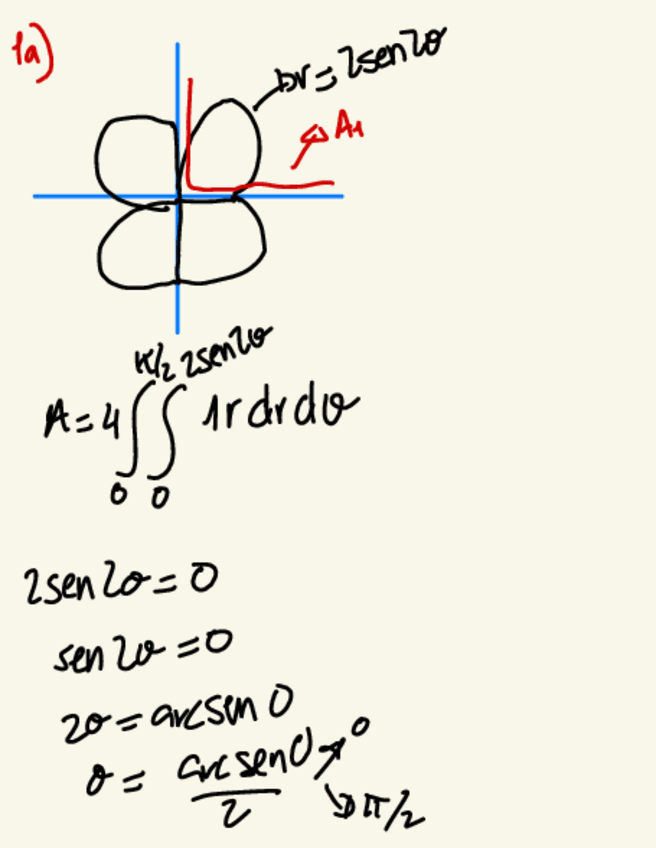 1a)
r=2senzθ
A₁
π/2 2sen2θ
A=4∫∫ 1rdrdθ
0 0
2sen2θ=0
sen2θ=0
2θ=arcsen0
θ= arcsen0/2 → 0
→ π/2